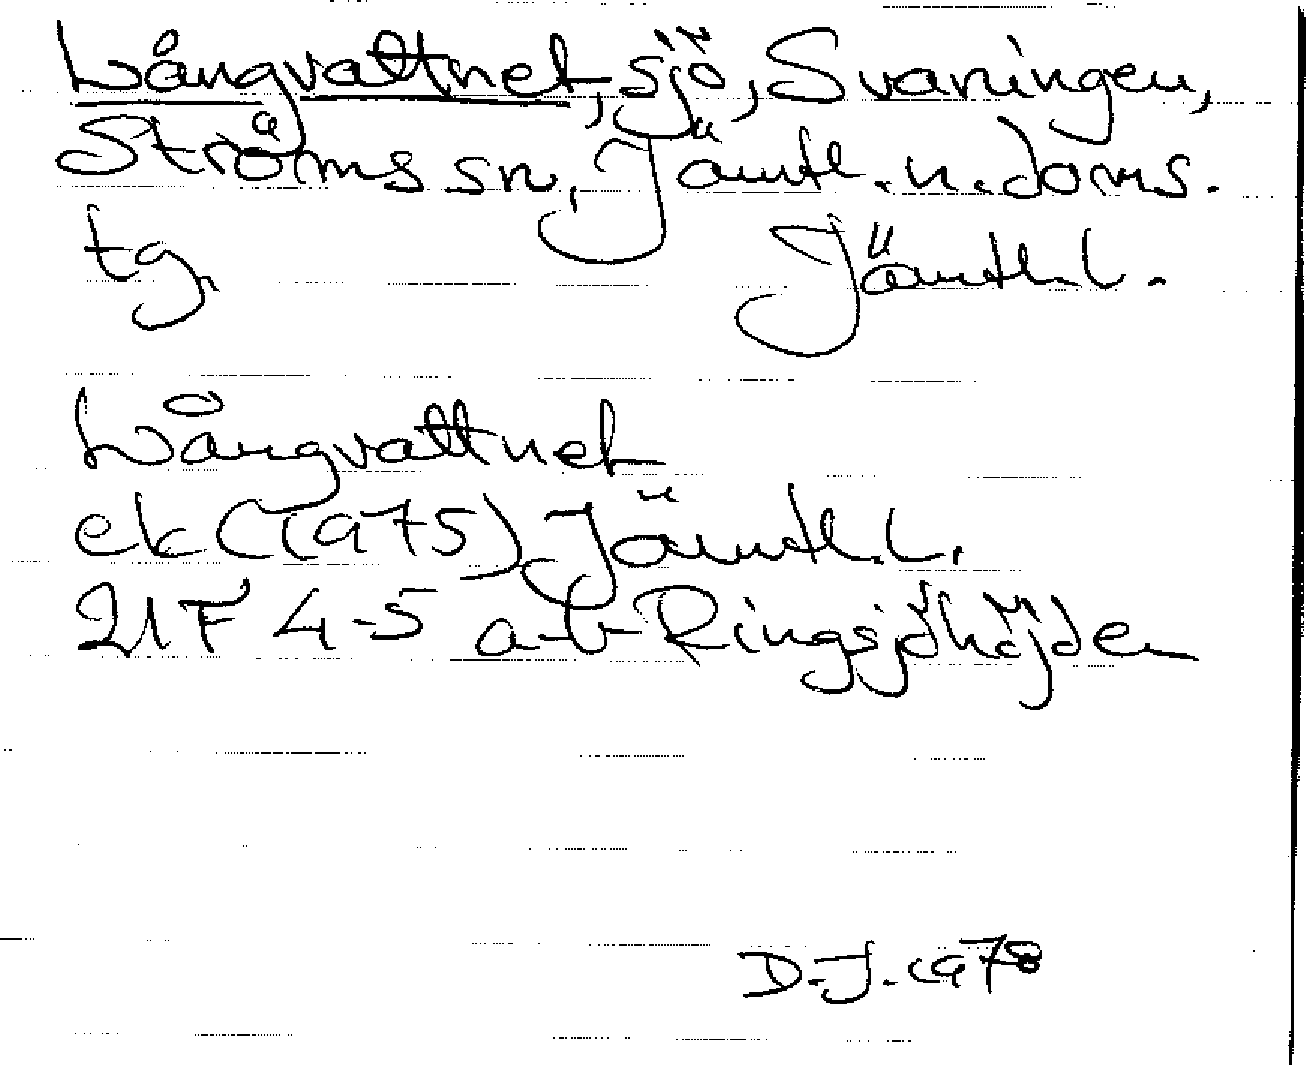 Långvattnet, sjö, Svaningen,
Ströms sn, Jämtl. n. doms.
tg, Jämtl. l.
Långvattnet
ek (1975) Jämtl. l.
21 F 4-5 a-b Ringsjöhöjden
D. J. 1978